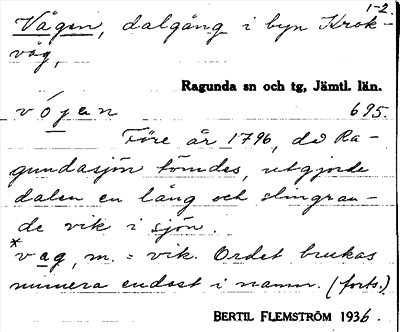 1-2.
Vågen, dalgång i byn Krok-
våg,
Ragunda sn och tg, Jämtl. län.
vójen 695.
Före år 1796, då Ra-
gundasjön tömdes, utgjorde
dalen en lång och slingran-
de vik i sjön.
*vag, m. = vik. Ordet brukas
numera endast i namn. (forts.)
BERTIL FLEMSTRÖM 1936.